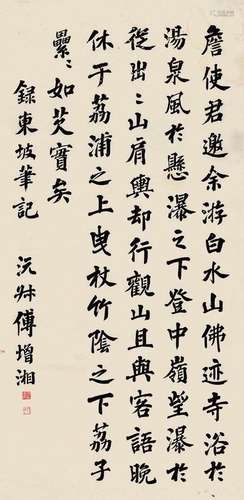 詹使君邀余游白水山佛迹寺浴於
湯泉風於懸瀑之下登中嶺望瀑於
從出〻山肩輿却行觀山且與客語晚
休于荔浦之上曳杖竹陰之下荔子
纍〻如芡實矣
録東坡筆記
沅叔傅增湘